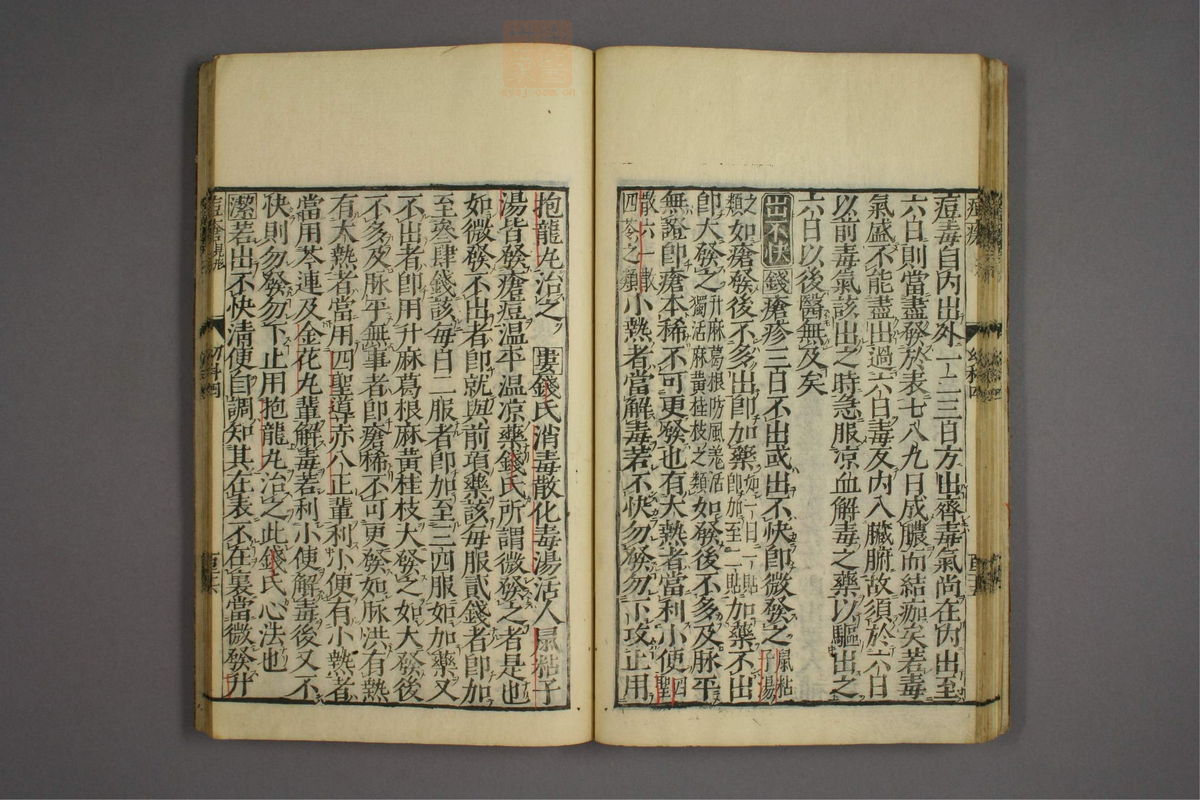 痘毒自內出外一二三日方出齊毒氣尚在內出至
六日則當盡發於表七八九日成膿而結痂矣若毒
氣盛不能盡出過六日毒反內入臟腑故須於六日
以前毒氣該出之時急服凉血解毒之藥以驅出之
六日以後醫無及矣
出不快 錢瘡疹三日不出或出不快卽微發之鼠粘子湯
之類如瘡發後不多出卽加藥如一日一貼卽加至二貼加藥不出
卽大發之升麻葛根防風羌活獨活麻黃桂枝之類如發後不多及脉平
無證卽瘡本稀不可更發也有大熱者當利小便四聖
散六一散四苓之類小熱者當解毒若不快勿發勿下攻止用
抱龍丸治之 婁錢氏消毒散化毒湯活人鼠粘子
湯皆發瘡痘温平温凉藥錢氏所謂微發之者是也
如微發不出者卽就與前項藥該每服貳錢者卽加
至叄肆錢該每日二服者卽加至三四服如加藥又
不出者卽用升麻葛根麻黃桂枝大發之如大發後
不多及脉平無事者卽瘡稀不可更發如脉洪有熱
有大熱者當用四聖導赤八正輩利小便有小熱者
當用芩連及金花丸輩解毒若利小便解毒後又不
快則勿發勿下止用抱龍丸治之此錢氏心法也
潔若出不快清便自調知其在表不在裏當微發升